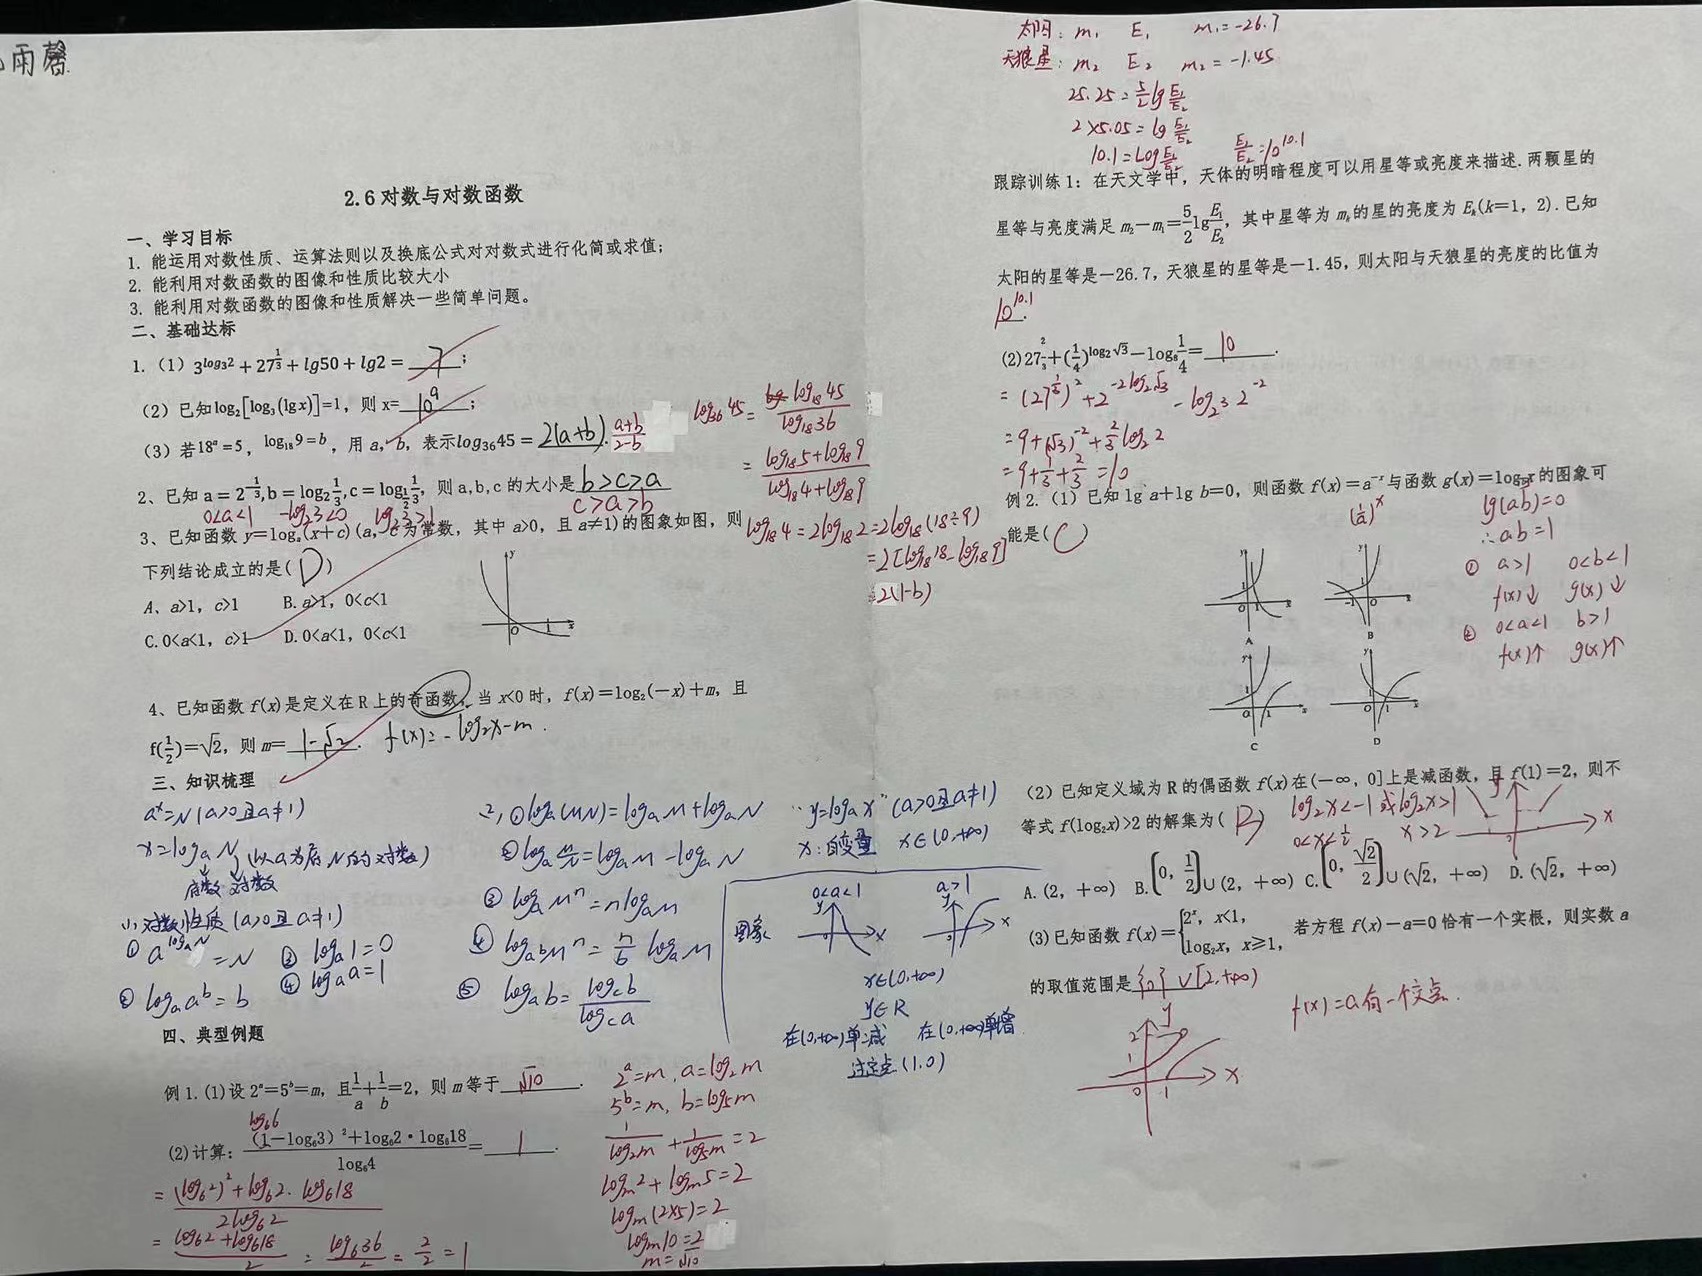 雨馨
2.6对数与对数函数
一、学习目标
1. 能运用对数性质、运算法则以及换底公式对对数式进行化简或求值;
2. 能利用对数函数的图像和性质比较大小
3. 能利用对数函数的图像和性质解决一些简单问题。
二、基础达标
1.（1）3^{log₃2}+27^{1/3}+lg50+lg2=7;
（2）已知log₂[log₃(lgx)]=1，则x=10⁹;
（3）若18ᵃ=5，log₁₈9=b，用a，b，表示log₃₆45=2(a+b). (a+b)/(2-b)
log₃₆45=log₁₈45/log₁₈36
=(log₁₈5+log₁₈9)/(log₁₈4+log₁₈9)
log₁₈4=2log₁₈2=2log₁₈(18÷9)
=2[log₁₈18-log₁₈9]
=2(1-b)
2、已知a=2^{-1/3},b=log₂1/3,c=log_{1/2}1/3，则a,b,c的大小是b>c>a
c>a>b
0<a<1 -log₂3<0 log₂3>1
3、已知函数y=logₐ(x+c)(a，c为常数，其中a>0，且a≠1)的图象如图，则
下列结论成立的是(D)
A、a>1，c>1 B.a>1，0<c<1
C.0<a<1，c>1 D.0<a<1，0<c<1
y
O 1 x
4、已知函数f(x)是定义在R上的奇函数，当x<0时，f(x)=log₂(-x)+m，且
f(1/2)=√2，则m=1-√2. f(x)=-log₂x-m.
三、知识梳理
aˣ=N(a>0且a≠1)
x=logₐN(以a为底N的对数)
底数 真数
小对数性质(a>0且a≠1)
① a^{logₐN}=N ③ logₐ1=0
② logₐaᵇ=b ④ logₐa=1
2, ①logₐ(MN)=logₐM+logₐN
②logₐM/N=logₐM-logₐN
③ logₐMⁿ=nlogₐM
④ log_{aᵇ}Mⁿ=n/b logₐM
⑤ logₐb=log_c b/log_c a
"y=logₐx"(a>0且a≠1)
x:自变量 x∈(0,+∞)
图象 0<a<1 a>1
x∈(0,+∞)
y∈R
在(0,+∞)单减 在(0,+∞)单增
过定点(1,0)
四、典型例题
例1.(1)设2ᵃ=5ᵇ=m，且1/a+1/b=2，则m等于√10.
2ᵃ=m,a=log₂m
5ᵇ=m,b=log₅m
1/log₂m+1/log₅m=2
logₘ2+logₘ5=2
logₘ(2×5)=2
logₘ10=2
m=√10
log₆6
(2)计算: ((1-log₆3)²+log₆2·log₆18)/log₆4=1.
=((log₆2)²+log₆2·log₆18)/2log₆2
=(log₆2+log₆18)/2=log₆36/2=2/2=1
太阳: m₁ E₁ m₁=-26.7
天狼星: m₂ E₂ m₂=-1.45
25.25=5/2lgE₁/E₂
2×5.05=lgE₁/E₂
10.1=LogE₁/E₂ E₁/E₂=10^{10.1}
跟踪训练1: 在天文学中，天体的明暗程度可以用星等或亮度来描述.两颗星的
星等与亮度满足m₂-m₁=5/2lgE₁/E₂，其中星等为mₖ的星的亮度为Eₖ(k=1，2).已知
太阳的星等是-26.7，天狼星的星等是-1.45，则太阳与天狼星的亮度的比值为
10^{10.1}.
(2)27^{2/3}+(1/4)^{log₂√3}-log₈1/4=10.
=(27^{1/3})²+2^{-2log₂√3}-log_{2³}2⁻²
=9+(√3)⁻²+2/3log₂2
=9+1/3+2/3=10
例2.(1)已知lg a+lg b=0，则函数f(x)=a⁻ˣ与函数g(x)=log_bx的图象可
能是(C)
(1/a)ˣ
lg(ab)=0
∴ab=1
① a>1 0<b<1
f(x)↓ g(x)↓
② 0<a<1 b>1
f(x)↑ g(x)↑
A B
C D
(2)已知定义域为R的偶函数f(x)在(-∞，0]上是减函数，且f(1)=2，则不
等式f(log₂x)>2的解集为(B)
log₂x<-1或log₂x>1
0<x<1/2 x>2
A.(2，+∞) B.(0，1/2)∪(2，+∞) C.(0，√2/2)∪(√2，+∞) D.(√2，+∞)
(3)已知函数f(x)={2ˣ，x<1，log₂x，x≥1，若方程f(x)-a=0恰有一个实根，则实数a
的取值范围是{0}∪[2,+∞)
f(x)=a有一个交点.